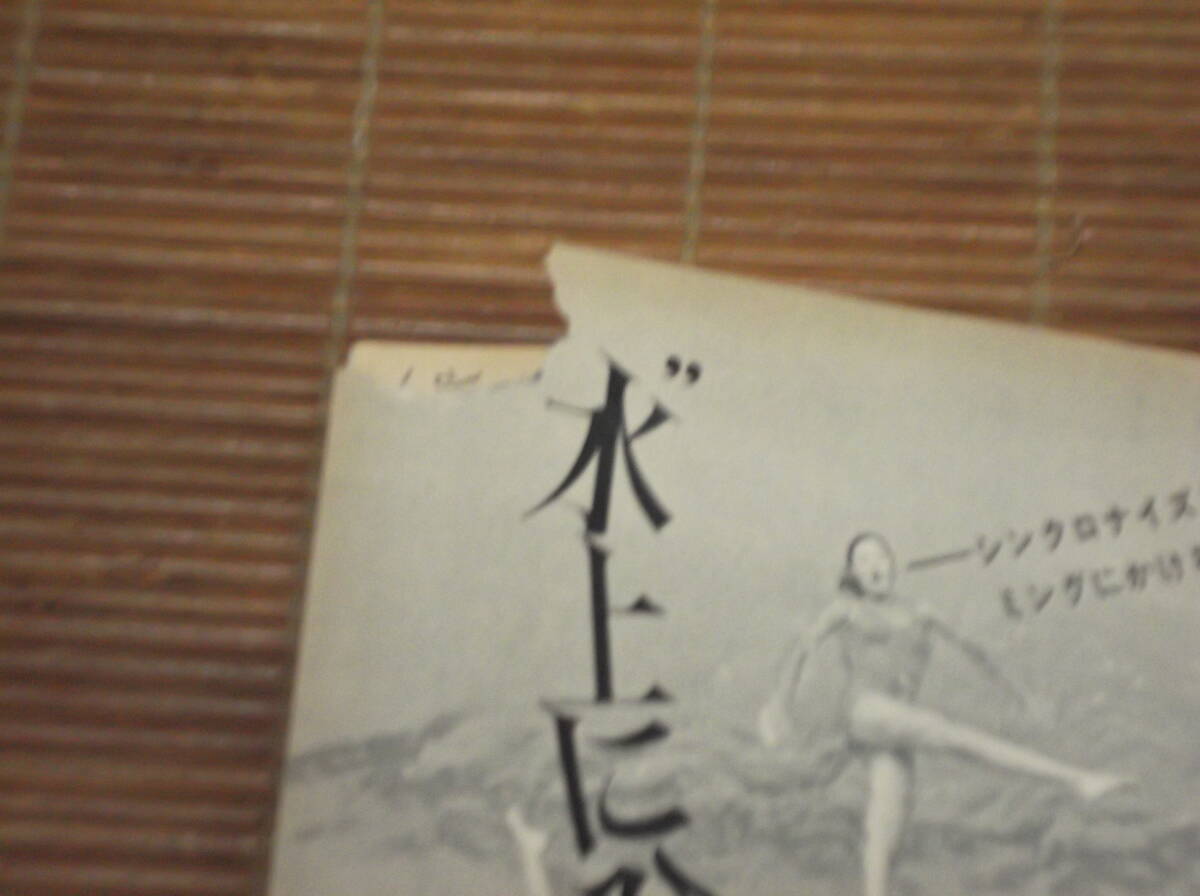 〝水上に
―シンクロナイズ
ミングにかけ